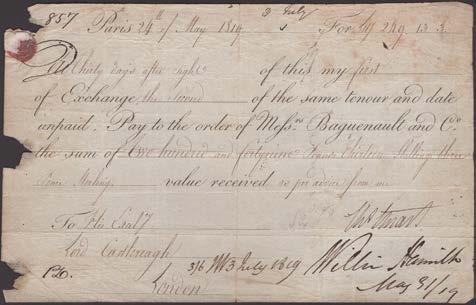 857 Paris 24th of May 1819 3 July For £ 249 13 3.
At Thirty days after sight of this my first
of Exchange, the second of the same tenour and date
unpaid. Pay to the order of Messrs Baguenault and Co.
the sum of two hundred and fortynine Pounds thirteen Shillings three
Pence Sterling. value received as per advice from me
To His Exaly Chs Stuart
Lord Castlereagh 3/6 3 July 1819 Hamilton
London May 31/19